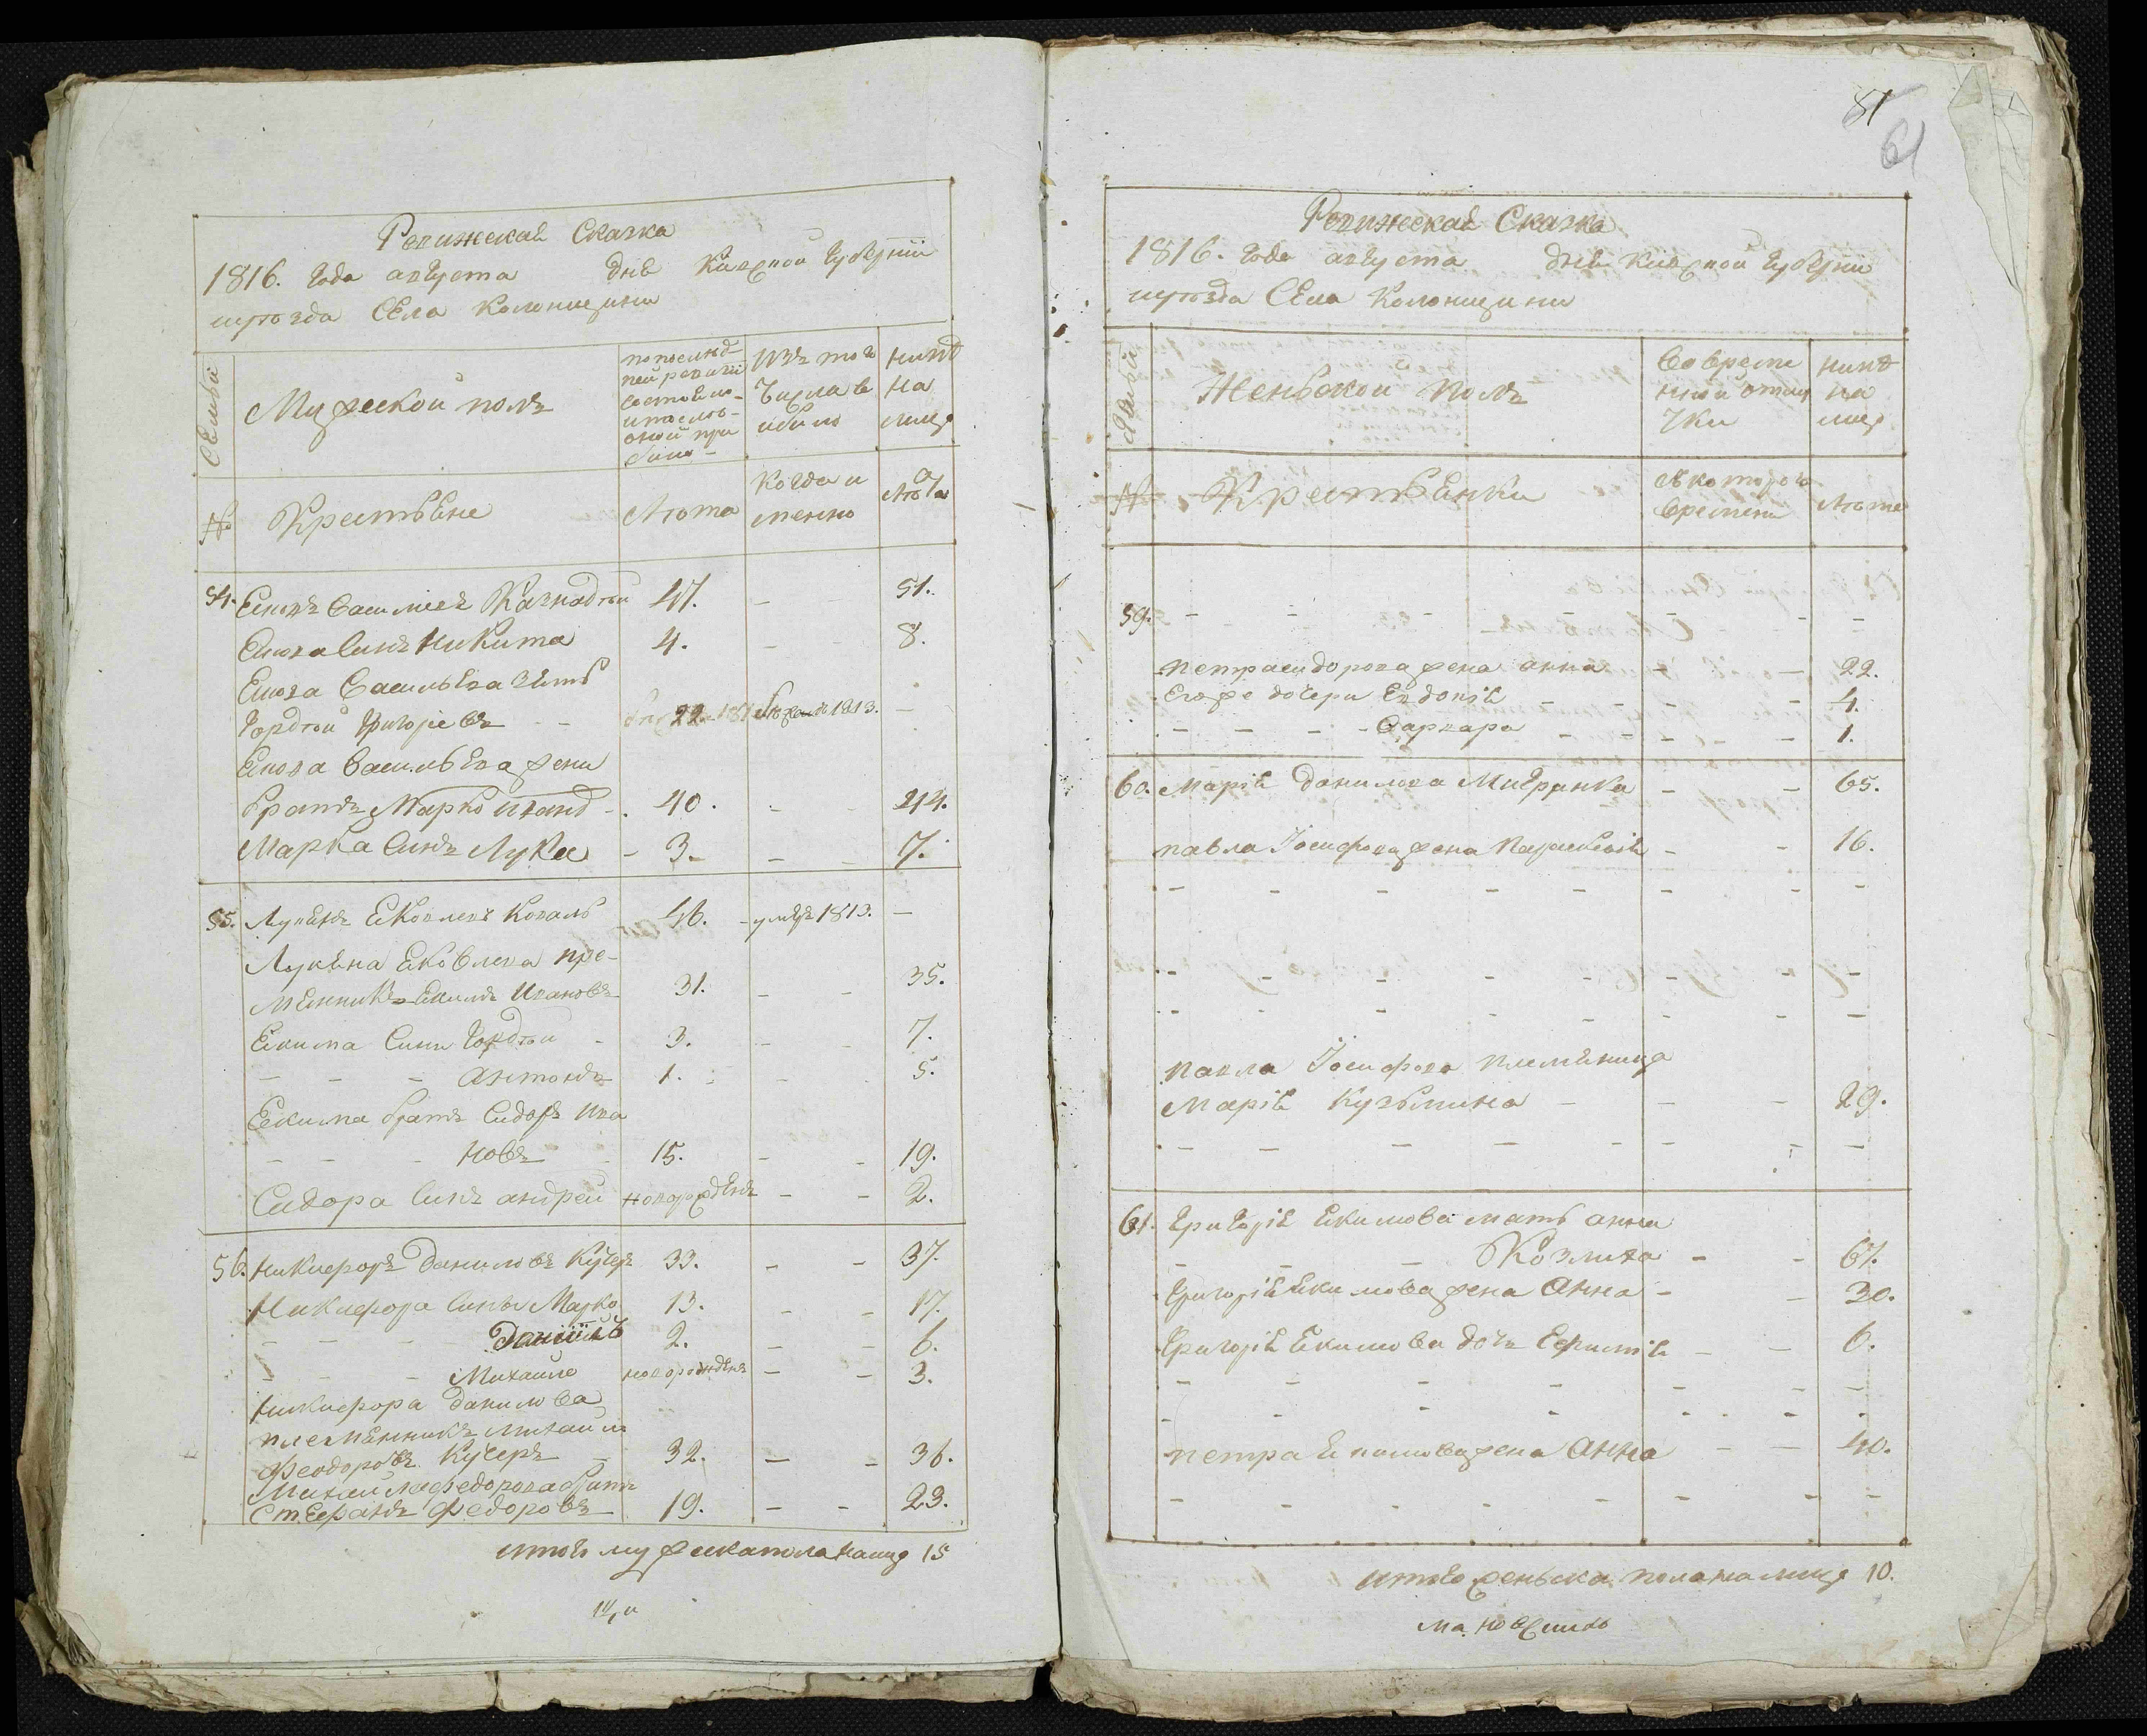 Ревижская Сказка
1816. года августа дня Киевской губернии
уезда Села Колонщини
Семьи
Мужеской полъ
по послед-
ней ревизи
состояло
и после
оной при
было
Изъ того
числа в
ибило
ныне
на
лице
№
Крестьяне
лета
когда и
менно
лета
54. Евъ василиев Казнадѣй 47. - - 51.
Сынъ Никита 4. - 8.
Васильева зять
Гордѣй Григориевъ - - 22 1813. -
Василева жени
братъ Марко Иванъ - 40. - - 44.
Марка Синъ Лука - 3. - - 7.
55. Лукянъ Яковлевъ Коваль 46. - умеръ 1813. -
Лукяна Яковлева пле-
мянникъ Екимъ Ивановъ 31. - - 35.
Екима Сини Гордѣй - 3. - - 7.
- - - антонъ 1. - - 5.
Екима братъ Сидоръ Ива
- - - новъ - 15. - - 19.
Сидора Синъ андрей новорожденъ - - 2.
56. Никифоръ Даниловъ Кучеръ 33. - - 37.
Никифора Сины Марко 13. - - 17.
- - - Даниилъ 2. - - 6.
- - - Михайло новорожденъ - - 3.
Никифора данилова
племянникъ Михайло
Феодоровъ Кучеръ - 32. - - 36.
Михайла федорова братъ
Стефанъ Федоровъ 19. - - 23.
итого мужеска пола налице 15
81
61
Ревижская Сказка
1816. года августа дня Киевской губернии
уезда Села Колонщини
Семьи
Женьской полъ
Во време
нной отлу
чки
ныне
на
лице
№
Крестьянки
съ которого
времени
лета
59. - - - - - - -
петра сидорова жена анна - - 22.
Его же дочери Евдокия - - - - 4.
- - - - Варвара - - - - 1.
60. Мария Данилова - - 65.
павла Иосифова жена Параскевия - - 16.
- - - - - - - -
- - - - - - - -
- - - - - - - -
павла Иосифова племяница
Мария Кузьмина - - - 29.
- - - - - - - -
61. Григория Екимова мать анна
- - - Козлиха - - 67.
Григория Екимова жена Анна - - 30.
Григория Екимова дочъ Ефимия - - 6.
- - - - - - - -
- - - - - - - -
петра Екимова жена Анна - - 40.
- - - - - - - -
итого женьска пола налице 10.